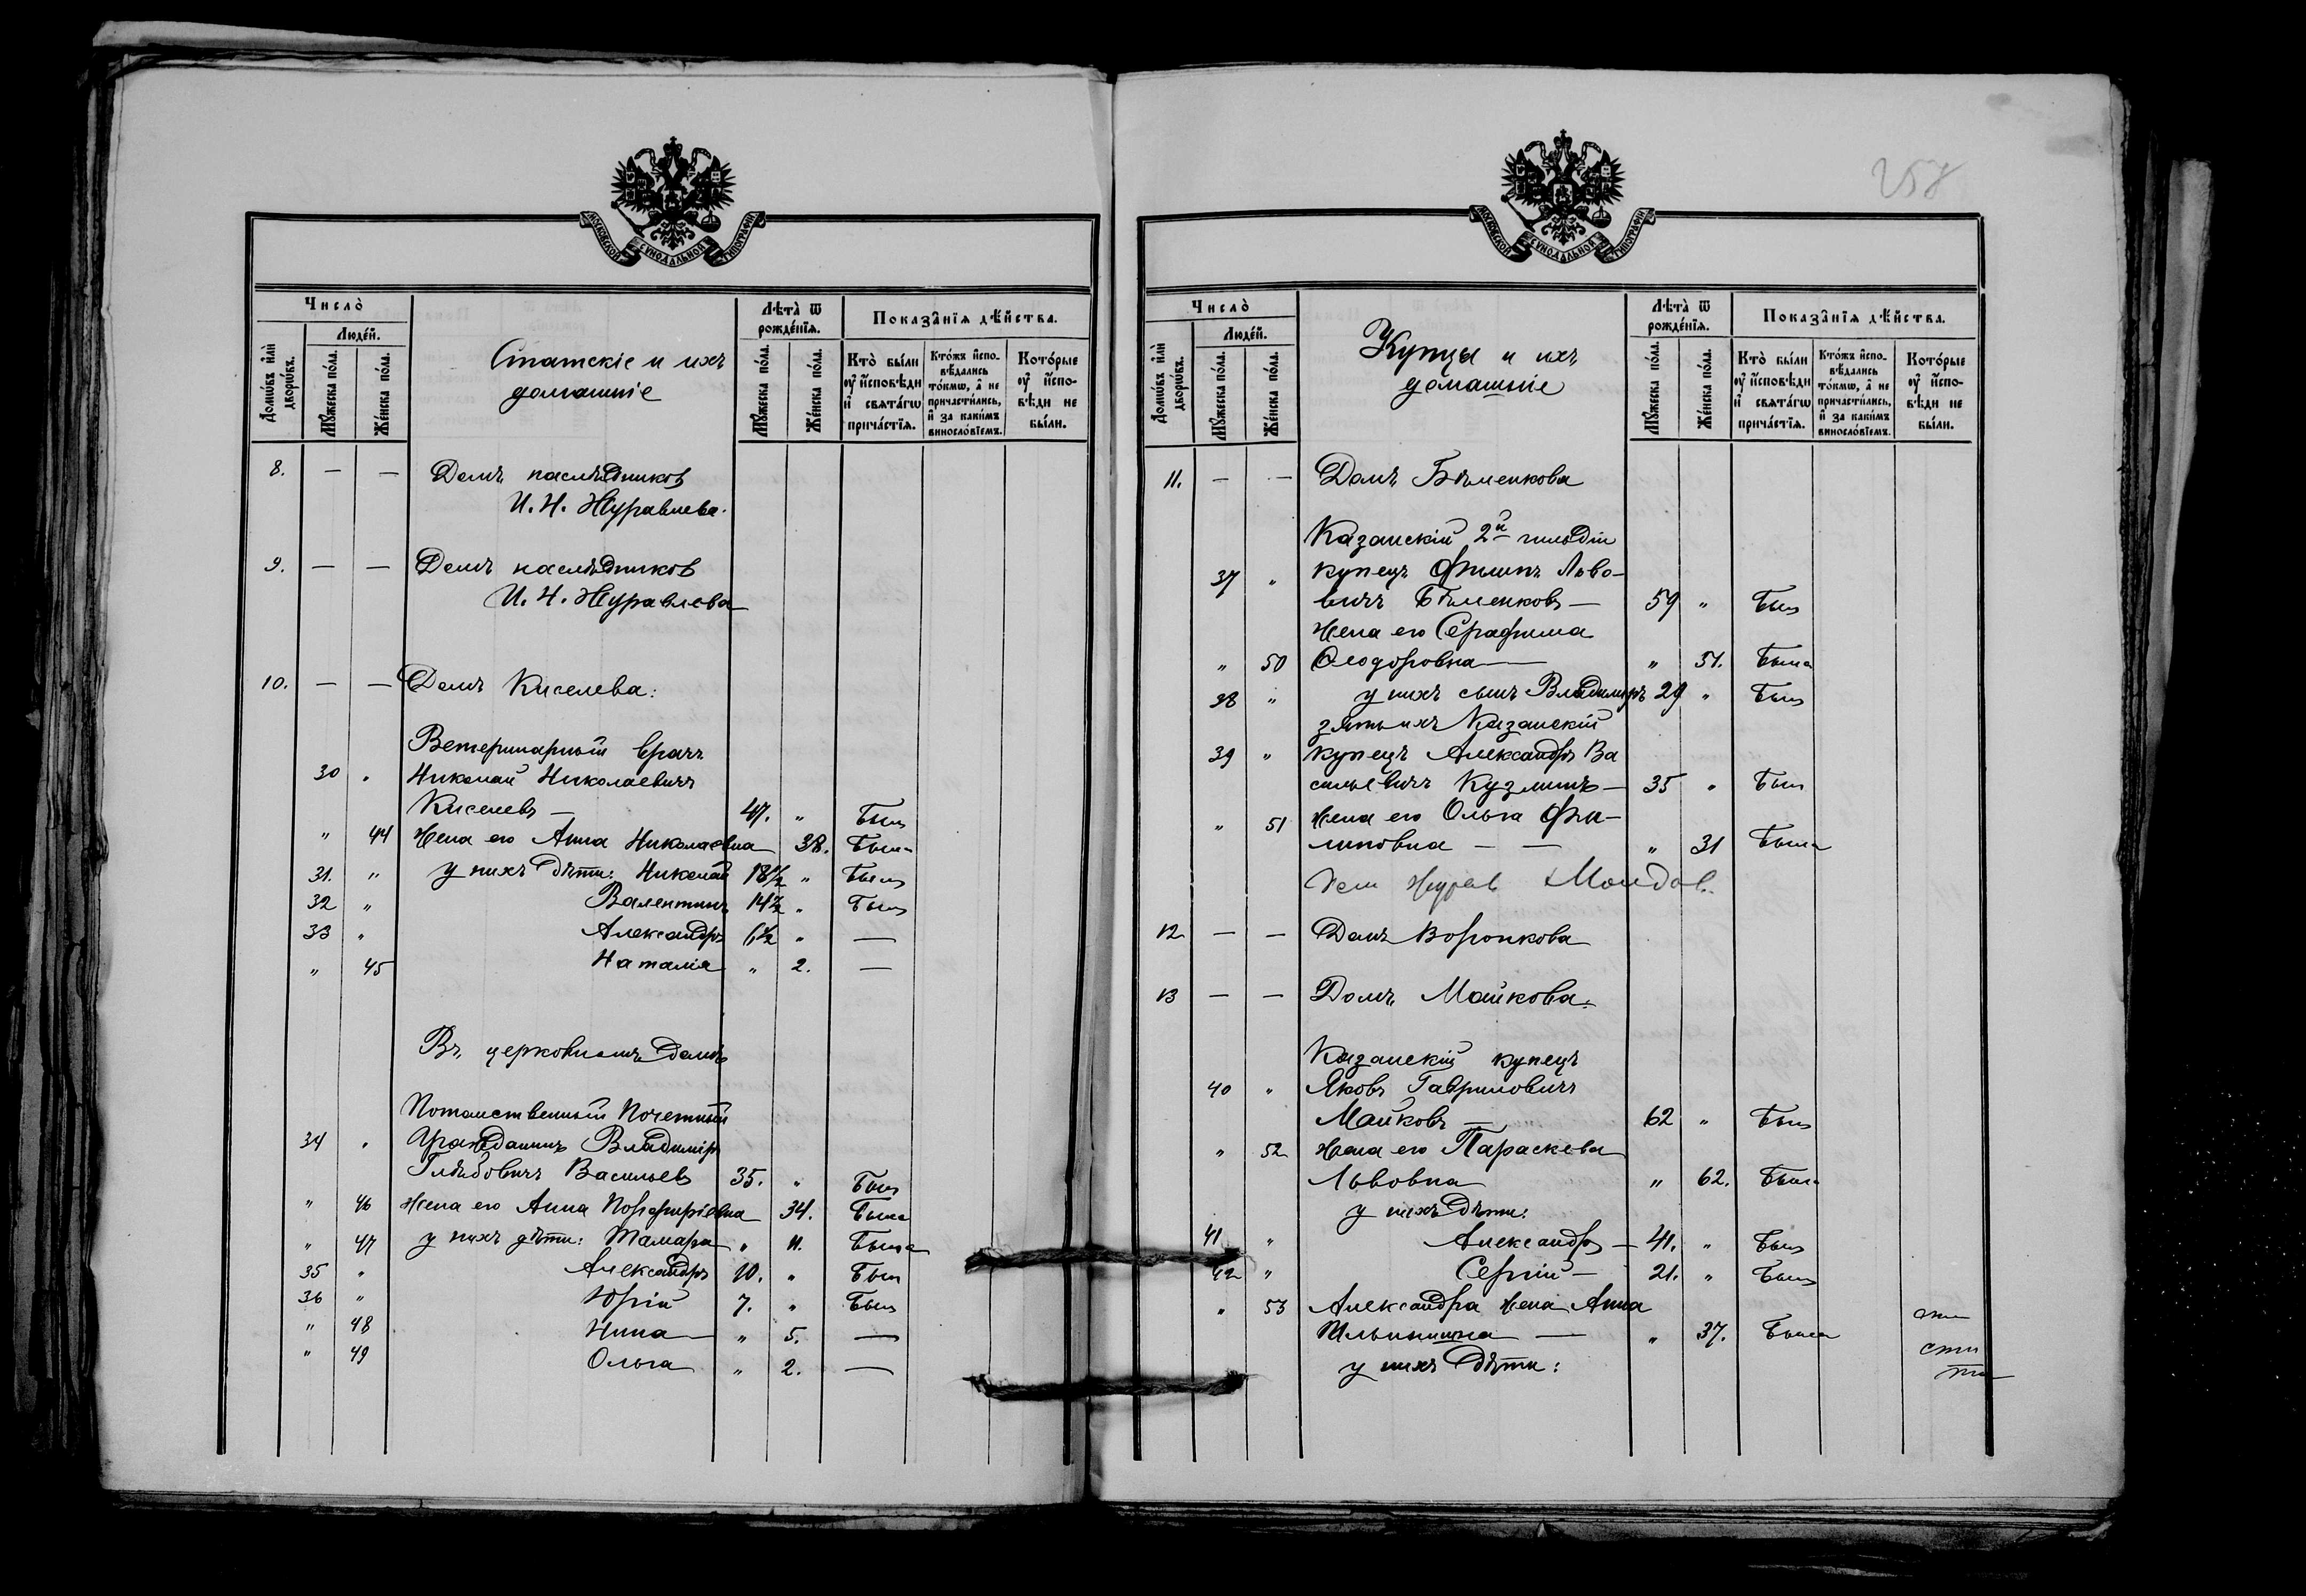 МОСКОВСКОЙ СѴНОДАЛЬНОЙ ТИПОГРАФІИ
Число̀
Людéй.
Домѡ́въ и҆лѝ дворѡ́въ.
Мꙋ́жеска по́ла.
Же́нска по́ла.
Статскіе и ихъ
домашніе
Лѣ́та ѿ рожде́нїѧ.
Мꙋ́жеска по́ла.
Же́нска по́ла.
Показа̑нїѧ дѣ́йства.
Кто̀ бы́ли оу҆ и҆́сповѣди и҆ свѧта́гѡ прича́стїѧ.
Кто́жъ и҆сповѣ́дались то́кмѡ, а҆ не причасти́лись, и҆ за каки́мъ виносло́вїемъ.
Кото́рые оу҆ и҆́сповѣди не бы́ли.
8. — — Домъ наслѣдниковъ
И. Н. Журавлева.
9. — — Домъ наслѣдниковъ
И. Н. Журавлева
10. — — Домъ Киселева:
Ветеринарный врачъ
30 „ Николай Николаевичъ
Киселевъ — 47. „ Былъ
„ 44 Жена его Анна Николаевна 38. Была
31. „ у нихъ дѣти: Николай 18½ „ Былъ
32 „ Валентинъ 14½ „ Былъ
33 „ Александръ 6½ „ —
„ 45 Наталія „ 2. —
Въ церковномъ домѣ
Потомственный Почетный
34 „ Гражданинъ Владимiръ
Глѣбовичъ Васильевъ 35. „ Былъ
„ 46 Жена его Анна Порфирiевна 34. Была
„ 47 у нихъ дѣти: Тамара „ 11. Была
35 „ Александръ 10. „ Былъ
36 „ Юрій 7. „ Былъ
„ 48 Нина — „ 5. —
„ 49 Ольга „ 2. —
258
МОСКОВСКОЙ СѴНОДАЛЬНОЙ ТИПОГРАФІИ
Число̀
Людéй.
Домѡ́въ и҆лѝ дворѡ́въ.
Мꙋ́жеска по́ла.
Же́нска по́ла.
Купцы и ихъ
домашніе
Лѣ́та ѿ рожде́нїѧ.
Мꙋ́жеска по́ла.
Же́нска по́ла.
Показа̑нїѧ дѣ́йства.
Кто̀ бы́ли оу҆ и҆́сповѣди и҆ свѧта́гѡ прича́стїѧ.
Кто́жъ и҆сповѣ́дались то́кмѡ, а҆ не причасти́лись, и҆ за каки́мъ виносло́вїемъ.
Кото́рые оу҆ и҆́сповѣди не бы́ли.
11. — — Домъ Бѣленкова
Казанскій 2й гильдіи
37 „ купецъ Филипъ Льво-
вичъ Бѣленковъ — 59 „ Былъ
Жена его Серафима
„ 50 Ѳеодоровна — „ 51. Была
38 „ у нихъ сынъ Владимиръ 29 „ Былъ
зять ихъ Казанскій
39 „ купецъ Александръ Ва
сильевичъ Кузминъ — 35 „ Былъ
„ 51 Жена его Ольга Фи-
липовна — — „ 31 Была
12 — — Домъ Воронкова
13 — — Домъ Майкова.
Казанскій купецъ
40 „ Яковъ Гавриловичъ
Майковъ — 62 „ Былъ
„ 52 Жена его Параскева
Львовна „ 62. Была
у нихъ дѣти:
41 „ Александръ — 41. „ Былъ
42 „ Сергій — 21. „ Былъ
„ 53 Александра жена Анна
Ильинишна — „ 37. Была
у нихъ дѣти: